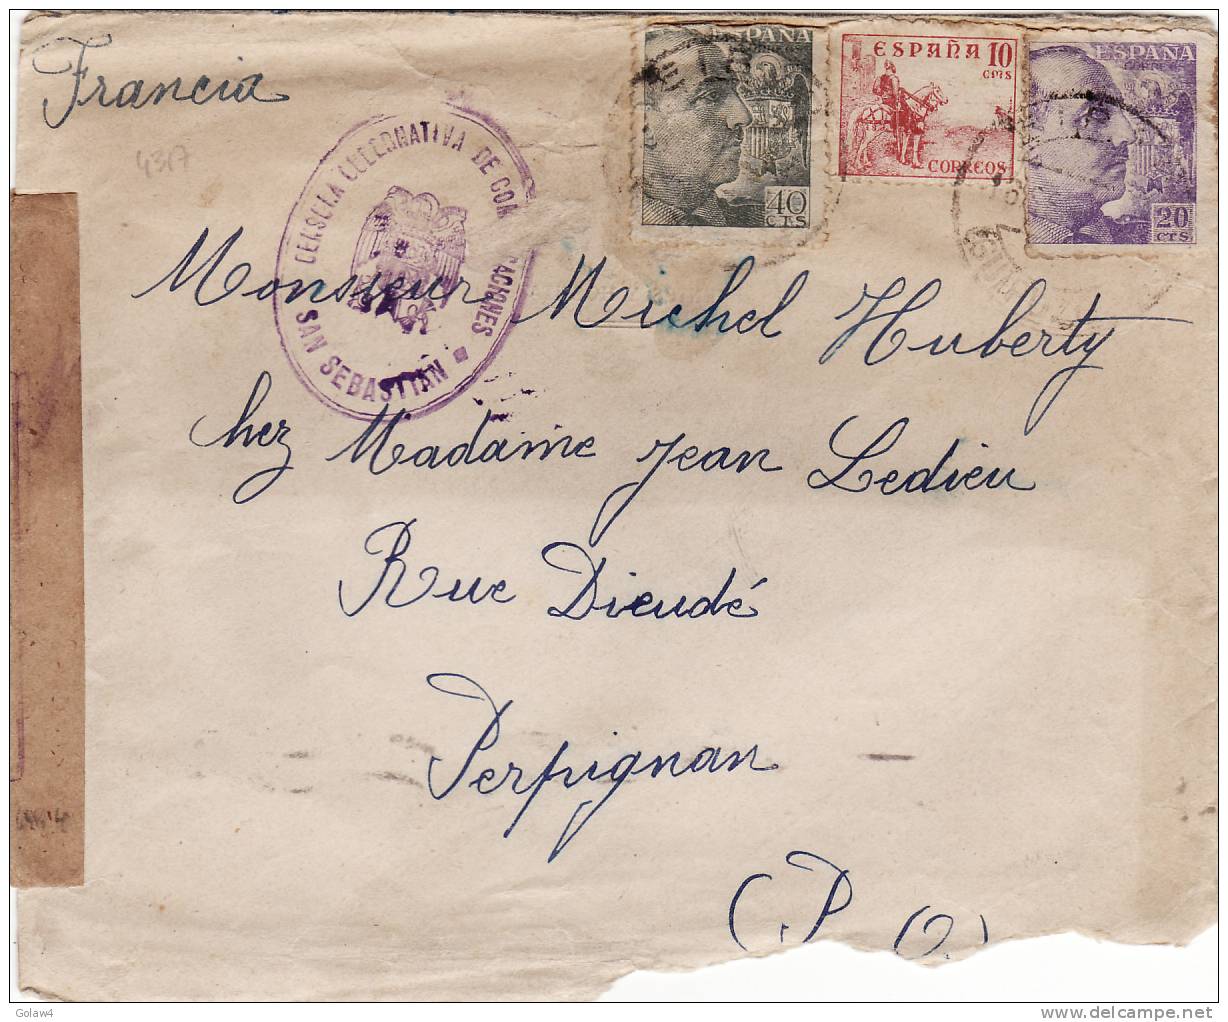 Francia
4317
CENSURA GUBERNATIVA DE COM CACIONES
SAN SEBASTIAN
ESPAÑA
40
CTS
ESPAÑA 10
CTMS
CORREOS
ESPAÑA
CORREOS
20
CTS
Monsieur Michel Huberty
chez Madame Jean Ledieu
Rue Dieudé
Perpignan
(P. O)
Golaw4
delcampe.net